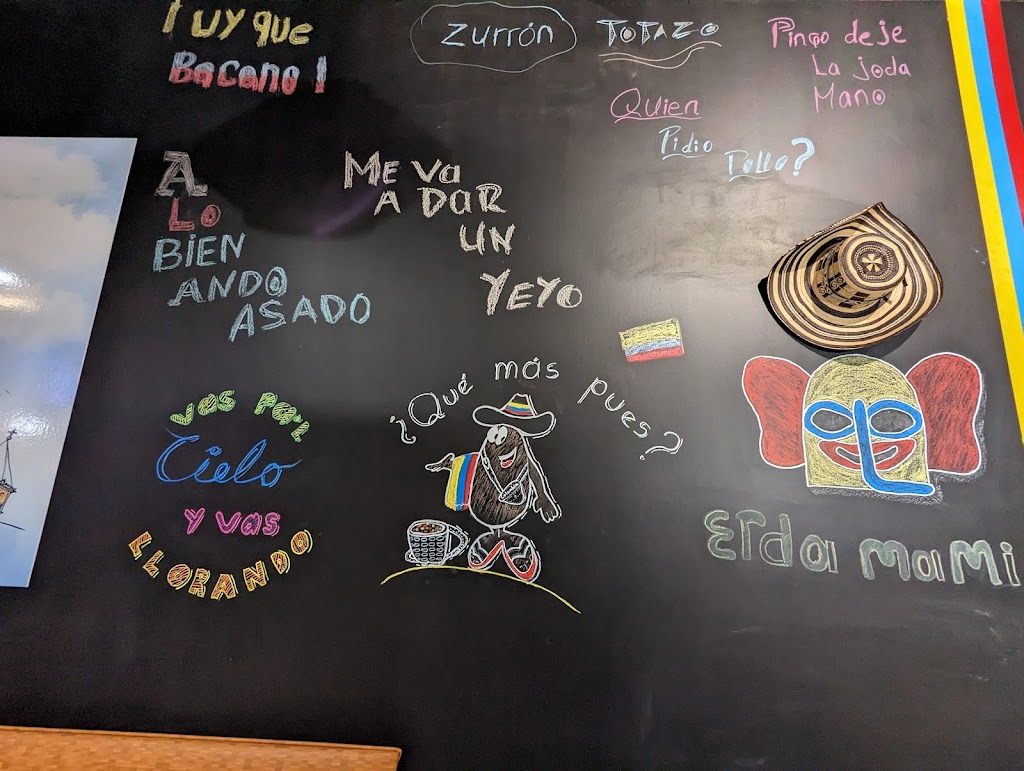 ! uy que
Bacano !
Zurrón
TOTAZO
Pingo deje
La joda
Mano
Quien
Pidio
Pollo?
A
Lo
BIEN
ANDO
ASADO
ME Va
A DaR
UN
YEYO
¿Qué más pues?
vas pa'l
Cielo
y vas
LLORANDO
Erda mami